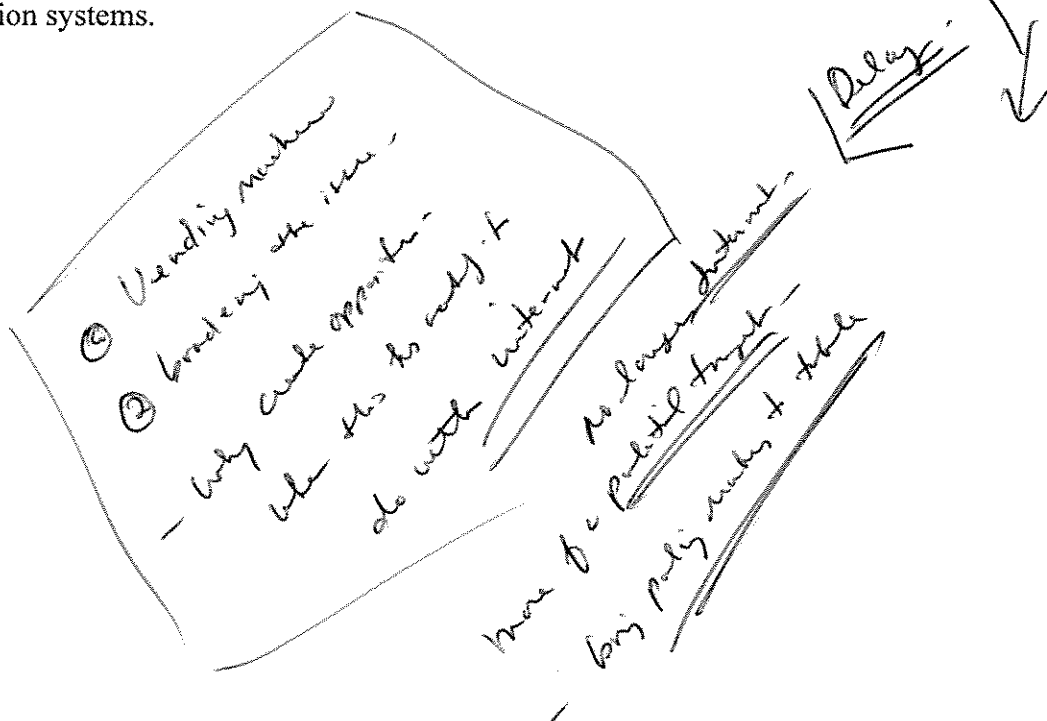 ion systems.
Delay.
① Vending machines
② broadening the issue -
- why create opposition -
when this has nothing to
do with internet
no longer Internet -
more of a political target -
- bring policy makers to table